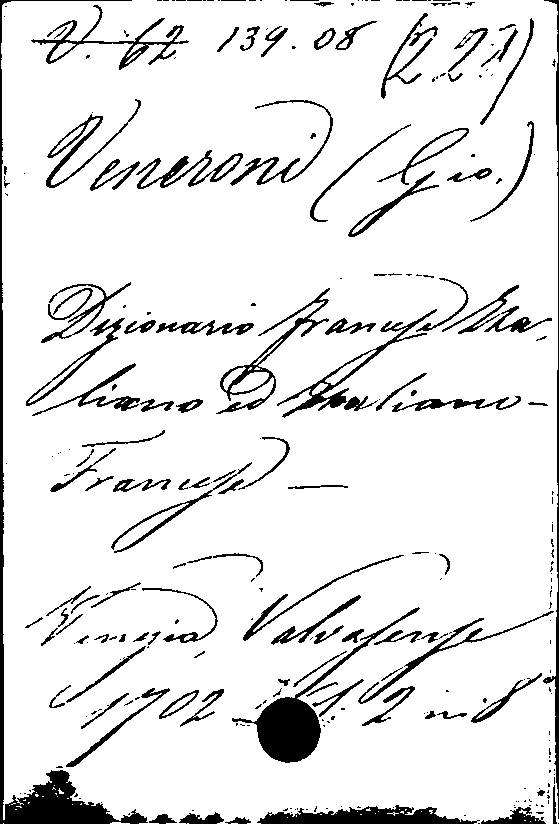 V. 62 139.08 (22
Veneroni (Gio.)
Dizionario francese Ita,
liano ed Italiano-
Francese —
Venezia, Valvasense
1702 2 in 8°